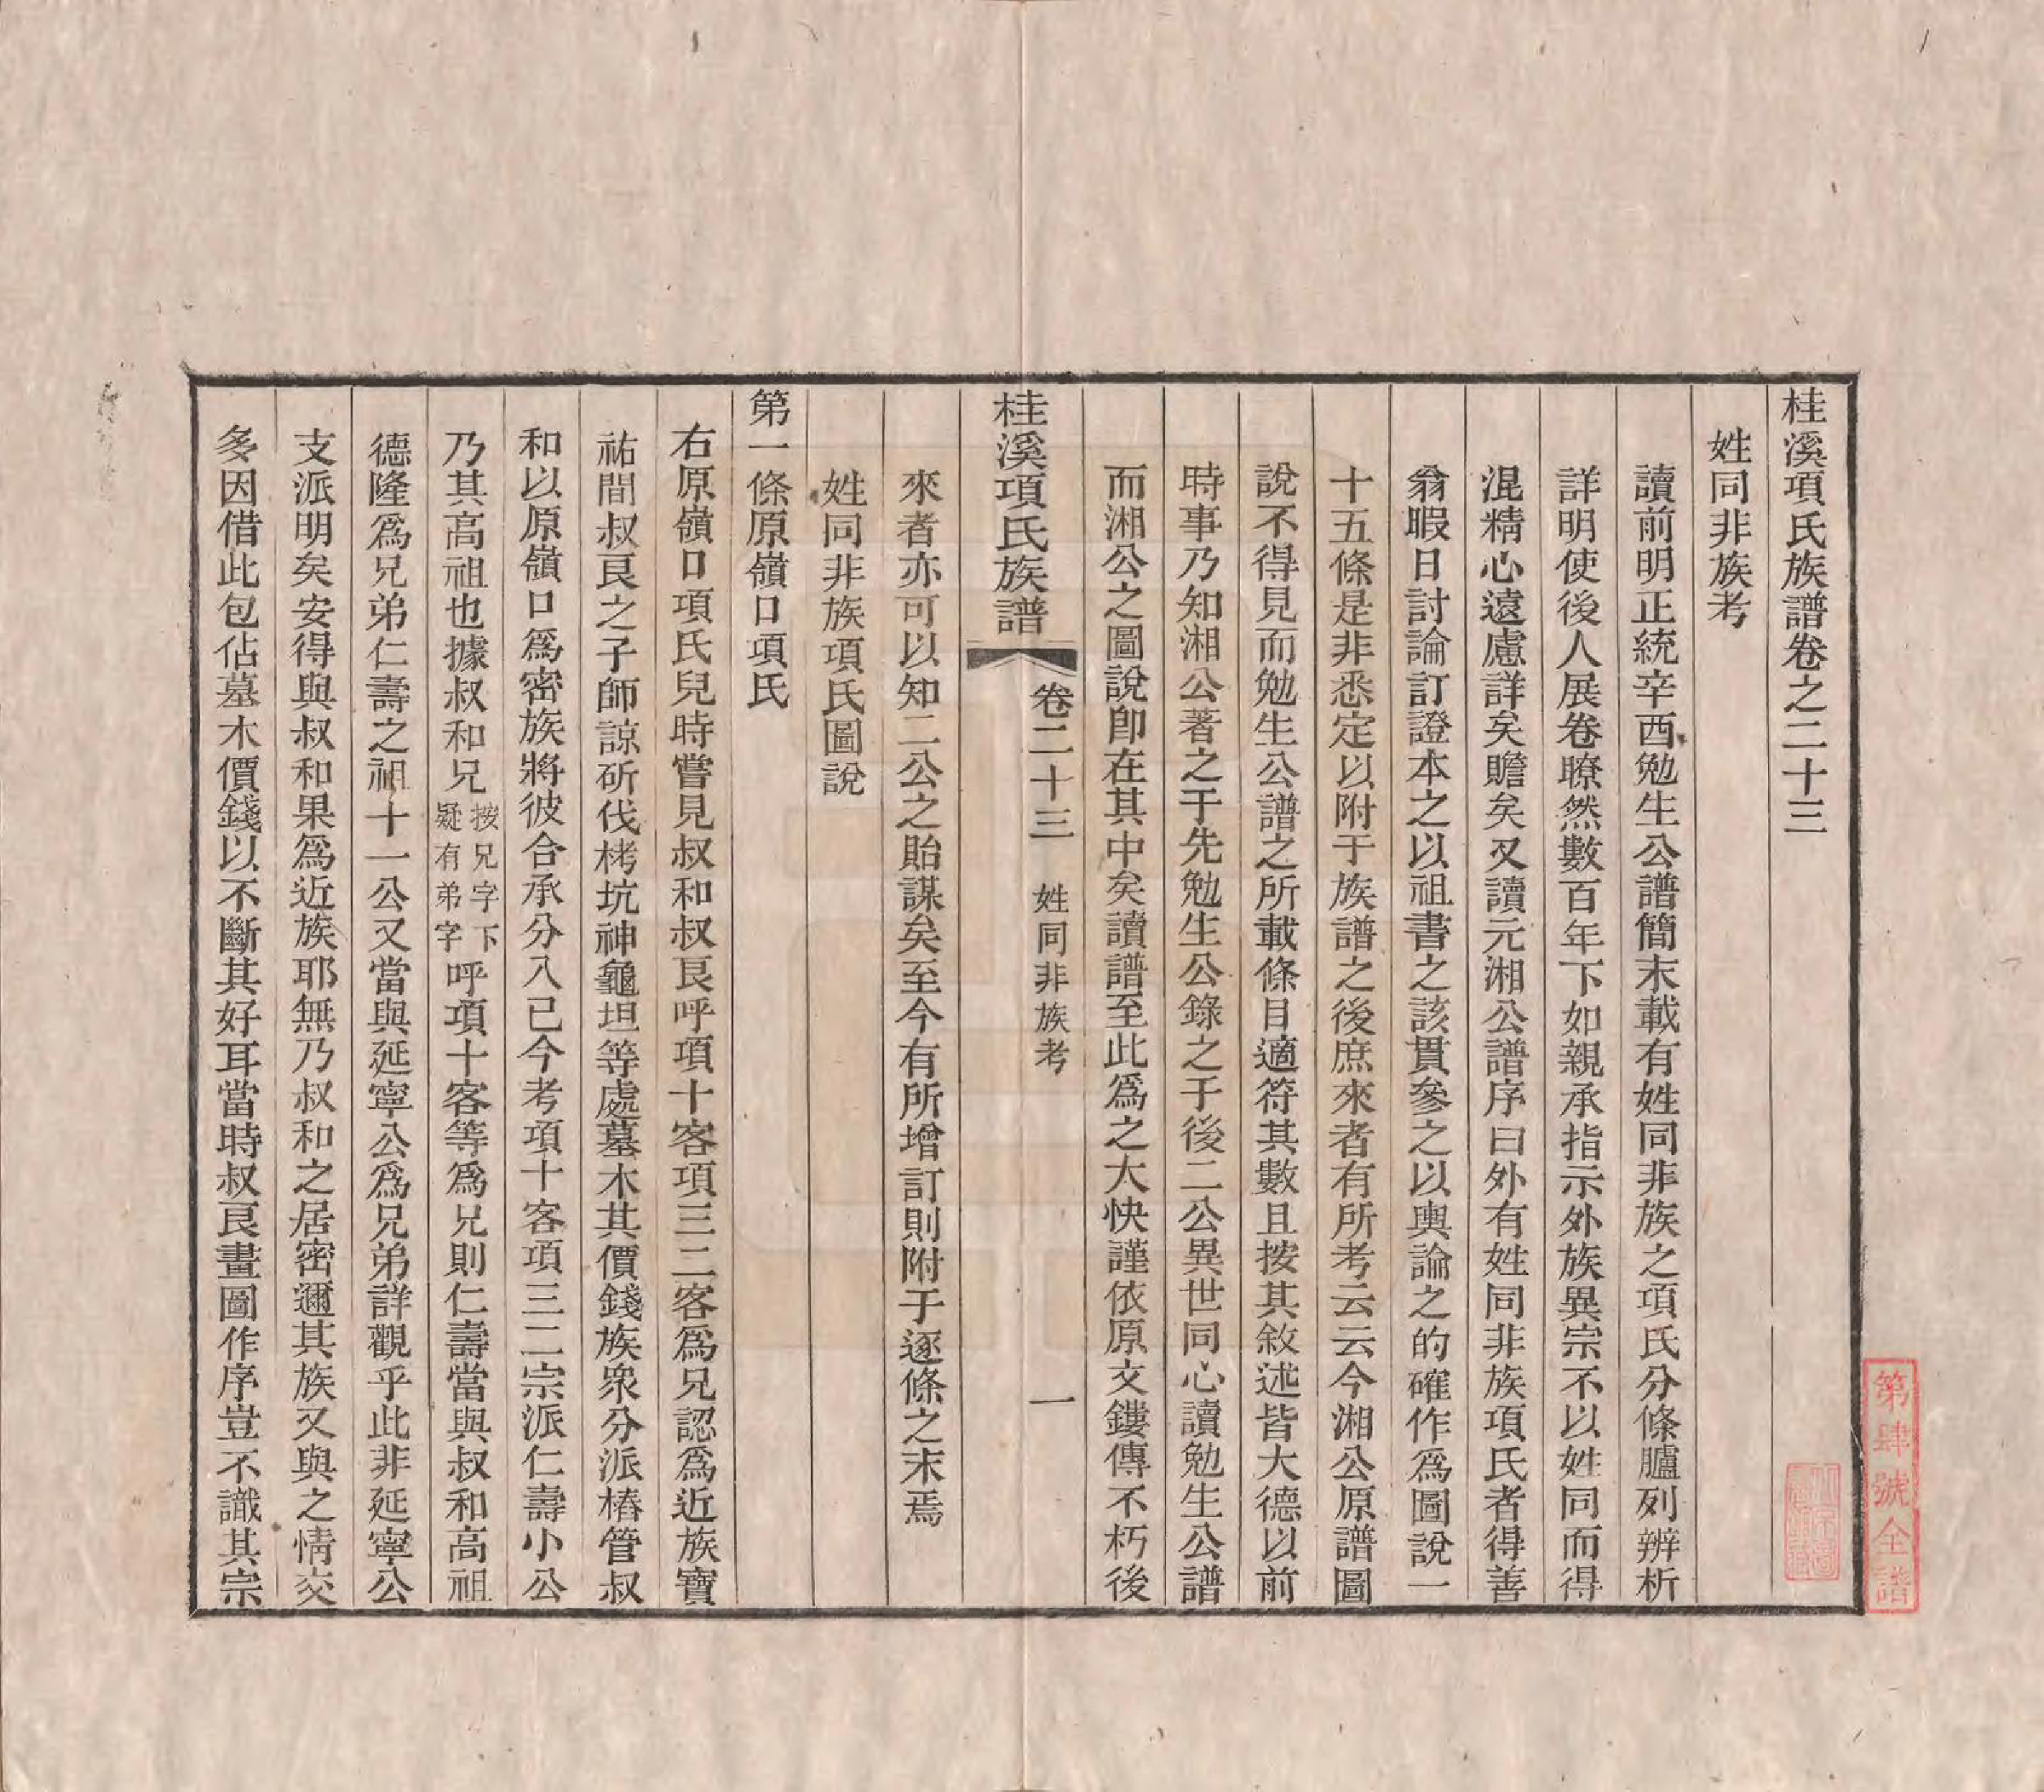 桂溪項氏族譜卷之二十三
姓同非族考
讀前明正統辛酉勉生公譜簡末載有姓同非族之項氏分條臚列辨析
詳明使後人展卷暸然數百年下如親承指示外族異宗不以姓同而得
混精心遠慮詳矣贍矣又讀元湘公譜序曰外有姓同非族項氏者得善
翁暇日討論訂證本之以祖書之該貫參之以輿論之的確作為圖說一
十五條是非悉定以附于族譜之後庶來者有所考云云今湘公原譜圖
說不得見而勉生公譜之所載條目適符其數且按其敘述皆大德以前
時事乃知湘公著之于先勉生公錄之于後二公異世同心讀勉生公譜
而湘公之圖說即在其中矣讀譜至此為之大快謹依原文鏤傳不朽後
桂溪項氏族譜 卷二十三 姓同非族考 一
來者亦可以知二公之貽謀矣至今有所增訂則附于逐條之末焉
姓同非族項氏圖說
第一條原嶺口項氏
右原嶺口項氏兒時嘗見叔和叔艮呼項十客項三二客為兄認為近族寶
祐間叔艮之子師諒斫伐栲坑神龜坦等處墓木其價錢族衆分派樁管叔
和以原嶺口為密族將彼合承分入已今考項十客項三二宗派仁壽小公
乃其高祖也據叔和兄按兄字下疑有弟字呼項十客等為兄則仁壽當與叔和高祖
德隆為兄弟仁壽之祖十一公又當與延寧公為兄弟詳觀乎此非延寧公
支派明矣安得與叔和果為近族耶無乃叔和之居密邇其族又與之情交
多因借此包佔墓木價錢以不斷其好耳當時叔艮畫圖作序豈不識其宗
第肆號全譜